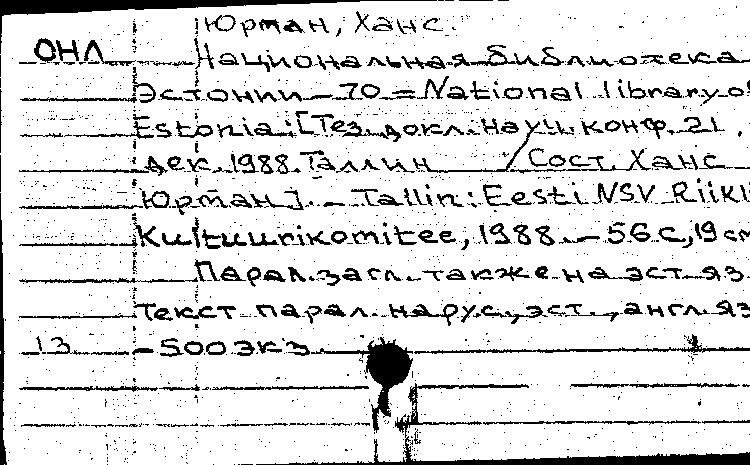 Юрман, Ханс.
ОНЛ Национальная библиотека
Эстонии – 70 = National library of
Estonia : [Тез. докл. науч. конф. 21,
дек. 1988. Таллин / Сост. Ханс
Юрман]. – Tallin : Eesti NSV Riikl
Kultuurikomitee, 1988. – 56 с., 19 см
Парал. загл. также на эст. яз.
Текст парал. на рус., эст., англ. яз
13 – 500 экз.